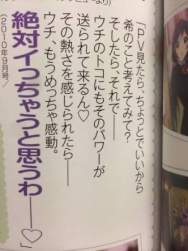 「PV見たら、ちょっとでいいから
希のこと考えてみて？
そしたら、それで――
ウチのトコにもそのパワーが
送られて来るん♡
その熱さを感じられたら――
ウチ、もうめっちゃ感動。
絶対イっちゃうと思うわ――♡」
(2010年9月号／